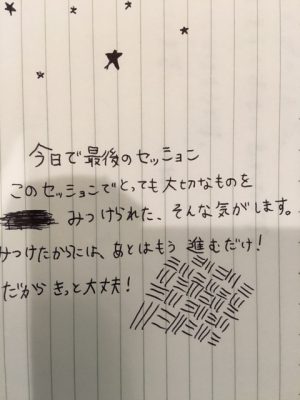 今日で最後のセッション
このセッションでとっても大切なものを
みつけられた、そんな気がします。
みつけたからには、あとはもう 進むだけ!
だから きっと大丈夫!